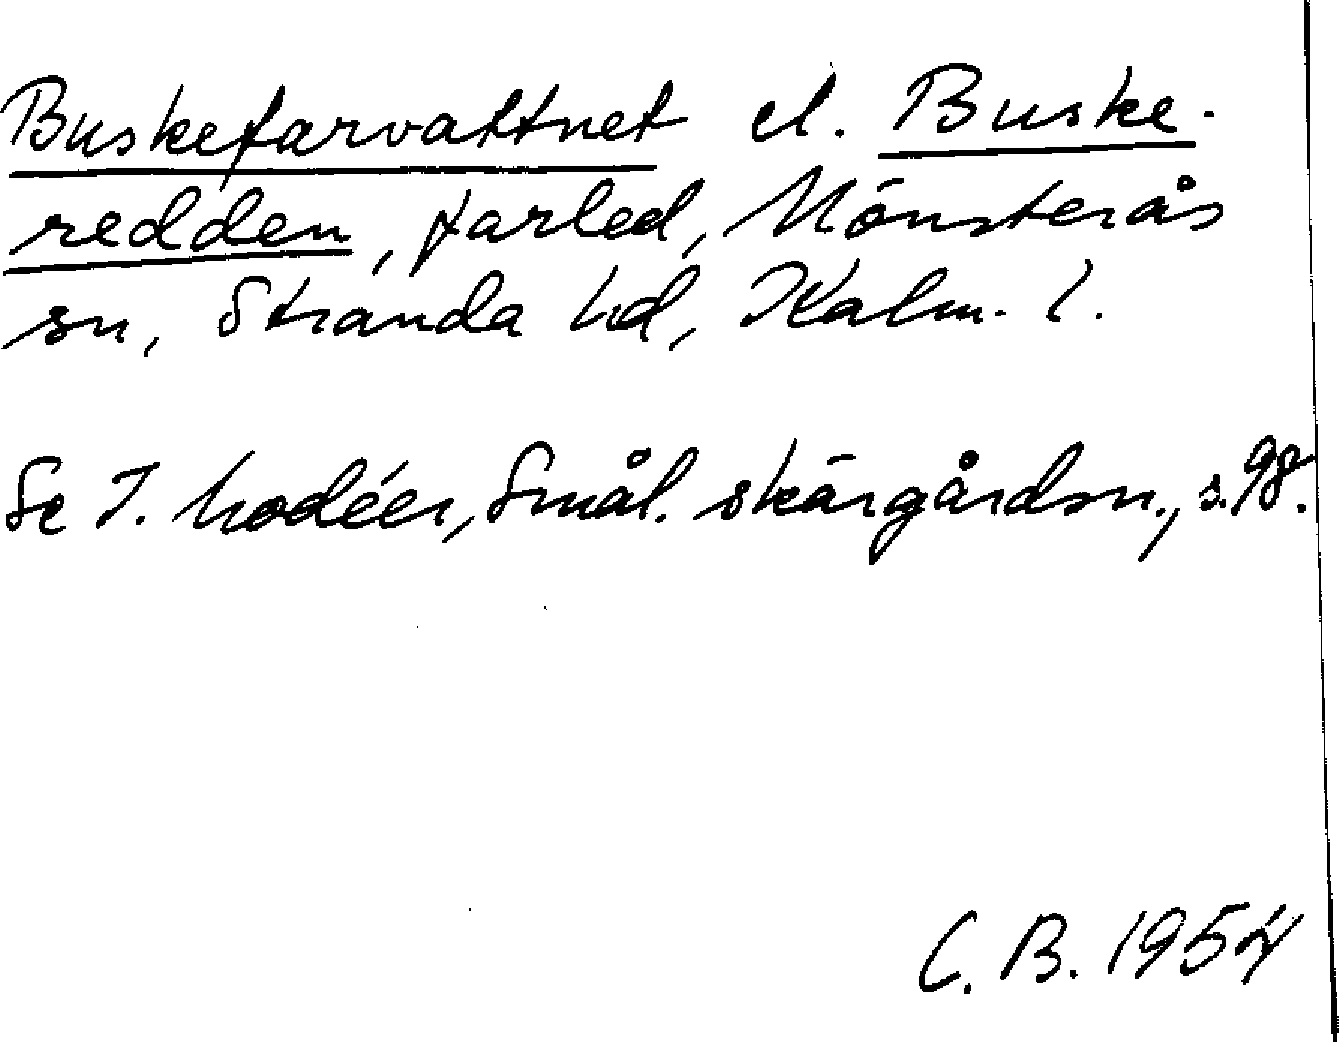 Buskefarvattnet el. Buske-
redden, farled, Mönsterås
sn, Stranda hd, Kalm. l.
Se I. Modéer, Smål. skärgårdsn., s. 98.
C. B. 1954